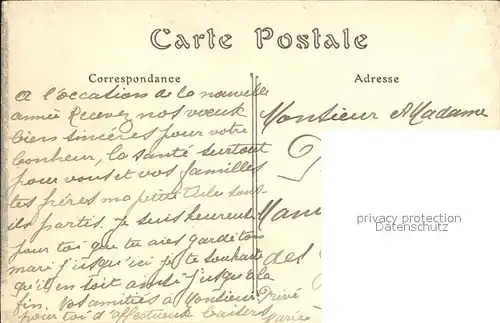 Carte Postale
Correspondance
Adresse
A l'occation de la nouvelle
année Recevez nos vœux
bien sincères pour votre
bonheur, la santé surtout
pour vous et vos familles
tes frères ma petite sont-
ils partis. Je suis heureuse
pour toi que tu aies gardé ton
mari jusqu'ici je te souhaite
qu'il en soit ainsi jusqu'à la
fin. Mes amitiés à Monsieur Privé
pour toi d'affectueux baisers
Marie
Monsieur & Madame
P
des
privacy protection
Datenschutz